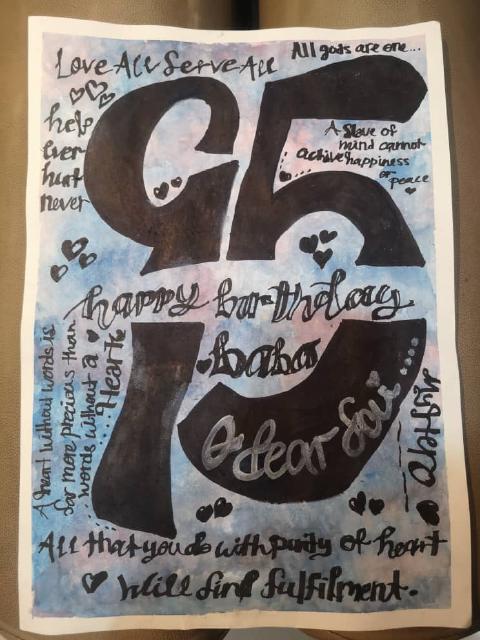 Love All Serve All
All gods are one...
help
ever
hurt
never
A Slave of
mind cannot
achive happiness
or peace
95
happy birthday
baba
O dear Sai....
A heart without words is
far more precious than
words without a
Heart
All that you do with purity of heart
will find fulfilment.